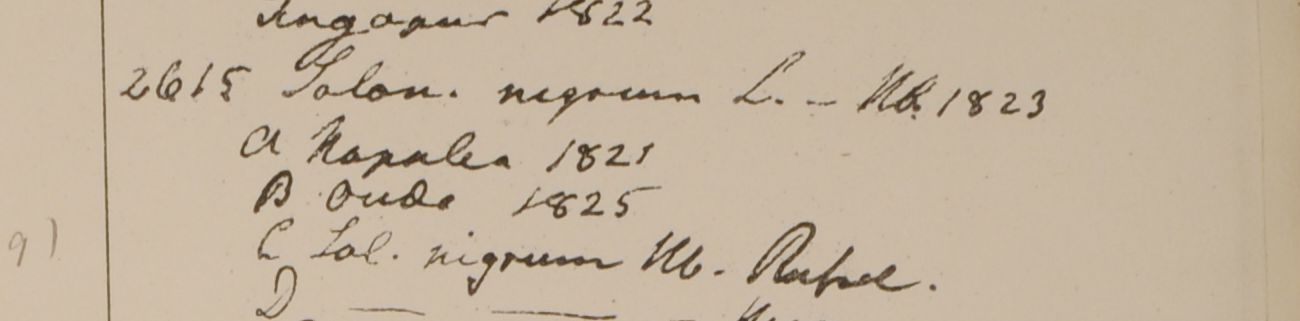 Singapur 1822
2615 Solan. nigrum L. – Hb. 1823
A Napalea 1821
B Oude 1825
C Sol. nigrum Hb. Russel.
D — —
9)